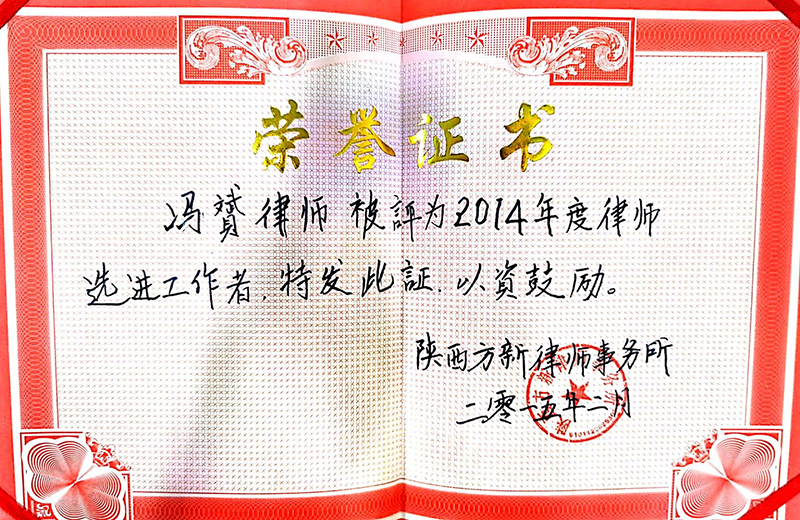 荣誉证书
冯赟律师被評为2014年度律师
先进工作者，特发此証，以资鼓励。
陕西方新律师事务所
二零一五年二月